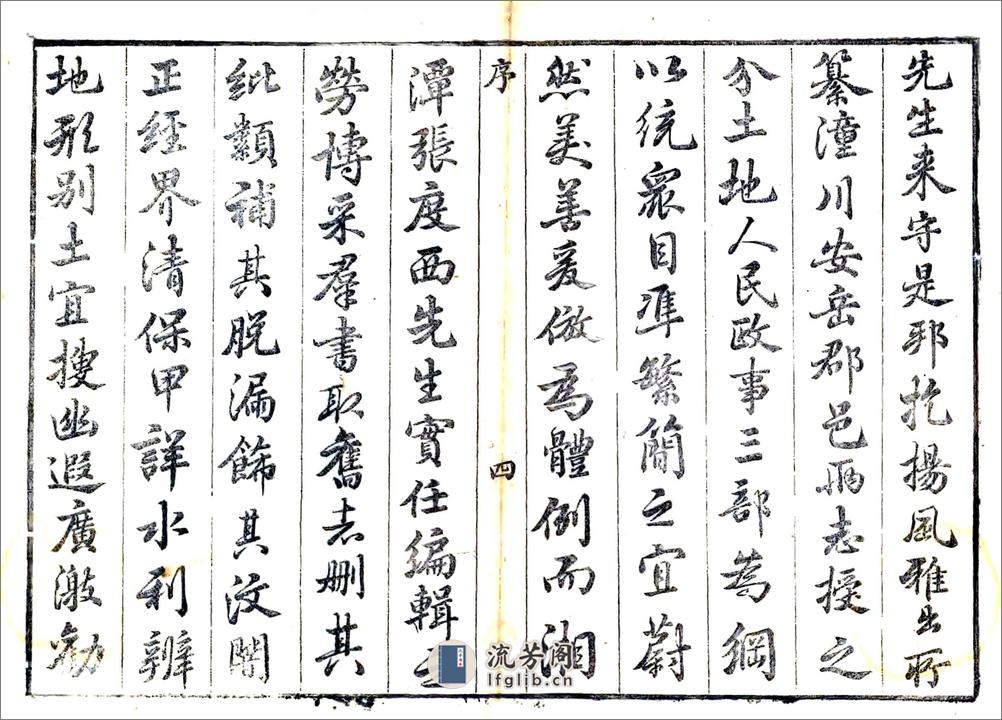 先生来守是邦扢揚風雅出所
纂潼川安岳郡邑兩志授之
分土地人民政事三部為綱
以統衆目準繁簡之宜蔚
然美善爰倣為體例而湘
序
四
潭張度西先生實任編輯之
勞博采羣書取舊志刪其
紕纇補其脱漏飾其汶闇
正經界清保甲詳水利辨
地形别土宜搜幽遐廣激勸
流芳阁
lfglib.cn